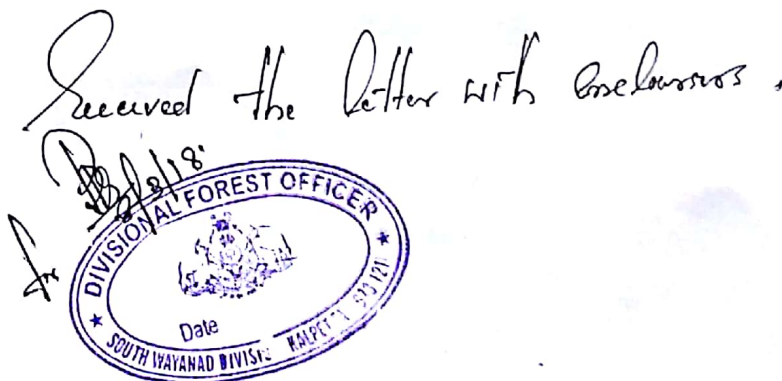 Received the letter with enclosures.
for
8/3/18
DIVISIONAL FOREST OFFICER
Date
SOUTH WAYANAD DIVISI
KALPET 673 121